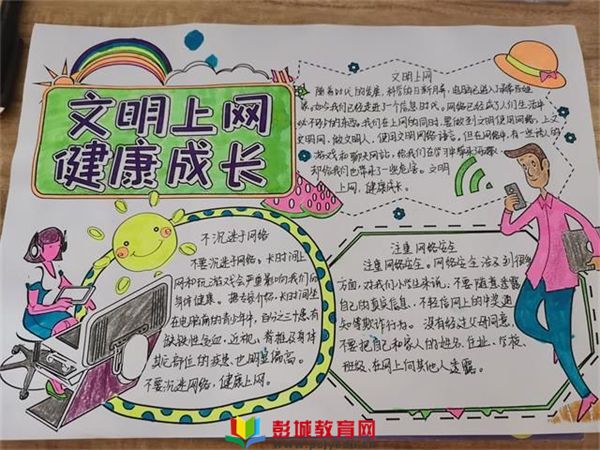 文明上网
健康成长
文明上网
随着时代的发展,科学的日新月异,电脑已进入
如今我们已经走进了信息时代。网络已经成了人们生活中
必不可少的东西。我们在上网的同时,要做到文明使用网络,上文
明网,做文明人,使用文明网络语言,但在网络中,有一些
游戏和聊天网站,给我们在学习中带来
却给我们也带来了一些危害。文明
上网,健康成长。
不沉迷于网络
不要沉迷于网络。长时间上
网和玩游戏会严重影响我们的
身体健康。据介绍,长时间坐
在电脑前的青少年中,百分之三十患有
缺铁性贫血、近视、脊椎及身体
其它部位的疾患,也明显偏高。
不要沉迷网络,健康上网。
注意网络安全
注意网络安全。网络安全涉及到很多
方面,对我们小学生来说,不要随意透露
自己的真实信息,不轻信网上的中奖通
知等欺诈行为。没有经过父母同意,
不要把自己和家人的姓名、住址、学校、
班级,在网上向其他人透露。
彭城教育网